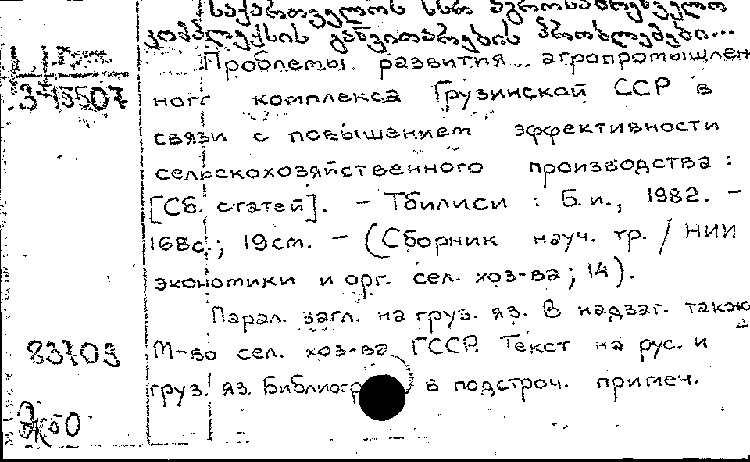 საქართველოს სსრ აგროსამრეწველო
კომპლექსის განვითარების პრობლემები...
Груз.
3-15507
Проблемы развития... агропромышлен
ного комплекса Грузинской ССР в
связи с повышением эффективности
сельскохозяйственного производства:
[Сб. статей]. - Тбилиси : Б.и., 1982. -
168с.; 19см. - (Сборник науч. тр. / НИИ
экономики и орг. сел. хоз-ва; 14).
Парал. загл. на груз. яз. В надзаг. также
М-во сел. хоз-ва ГССР. Текст на рус. и
груз. яз. Библиогр в подстроч. примеч.
83703